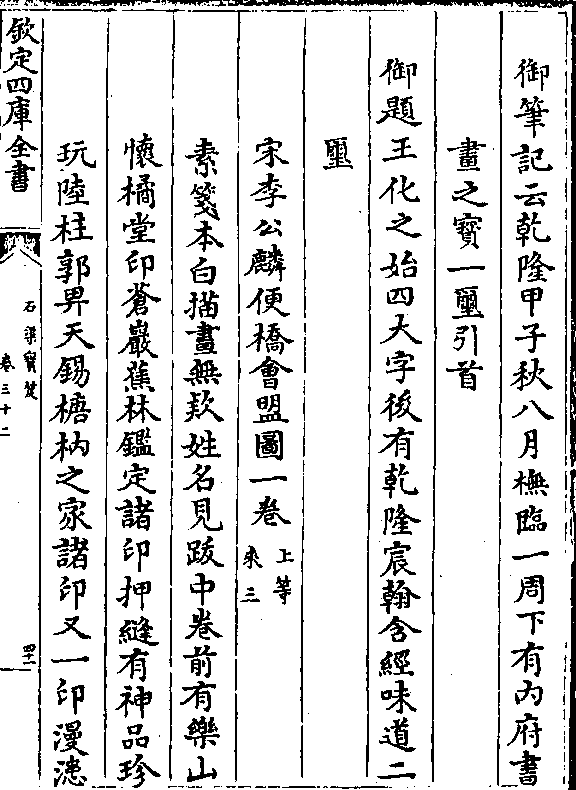 御筆記云乾隆甲子秋八月橅臨一周下有內府書
畫之寳一璽引首
御題王化之始四大字後有乾隆宸翰含經味道二
璽
宋李公麟便橋會盟圖一卷 上等 來三
素箋本白描畫無款姓名見跋中卷前有樂山
懷橘堂印蒼巖蕉林鑑定諸印押縫有神品珍
玩陸柱郭畀天錫榶枘之家諸印又一印漫漶
欽定四庫全書
石渠寳笈
卷三十二